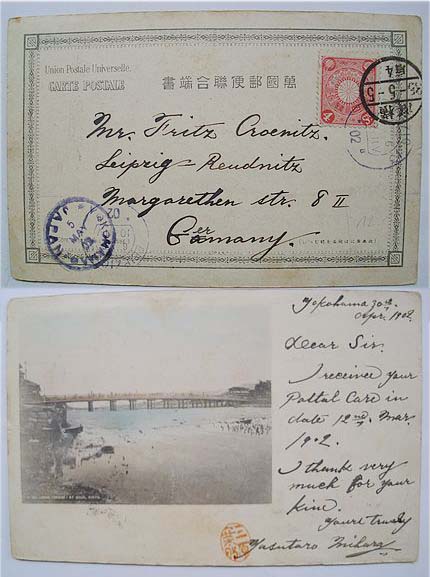 Union Postale Universelle.
CARTE POSTALE
書端合聯便郵國萬
Mr. Fritz Croenitz.
Leipzig = Reudnitz
Margarethen str. 8 II
Germany.
JAPAN
5
MAY
02
Yokohama 30th
Apr. 1902.
Dear Sir.
I receiver your
Postal Care in
date 12nd. Mar.
1902.
I thank very
much for your
kind.
Yours truly
Yasutaro Mihara